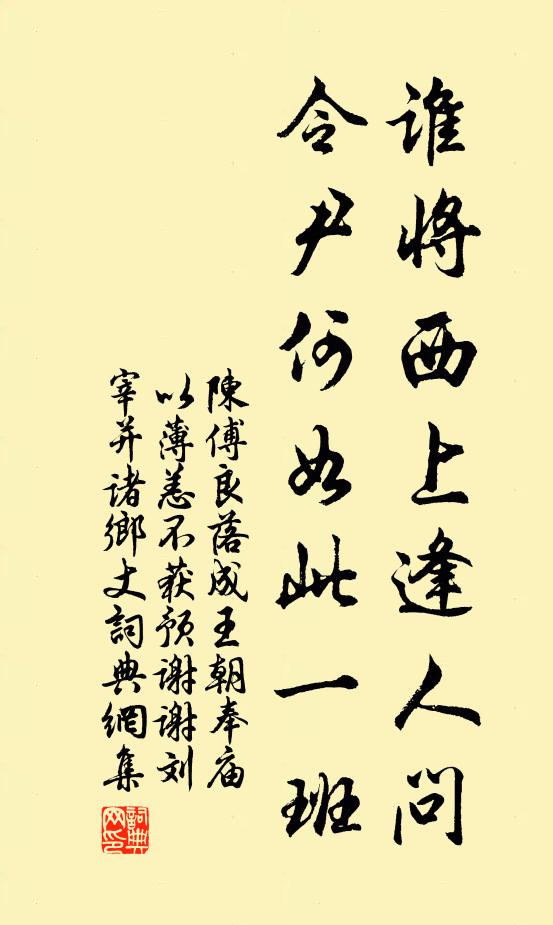 誰將西上逢人問
令尹何如此一班
陳傅良落成王朝奉庙
以薄恙不获预谢谢刘
宰并诸鄉丈詞典網集
詞典
网印